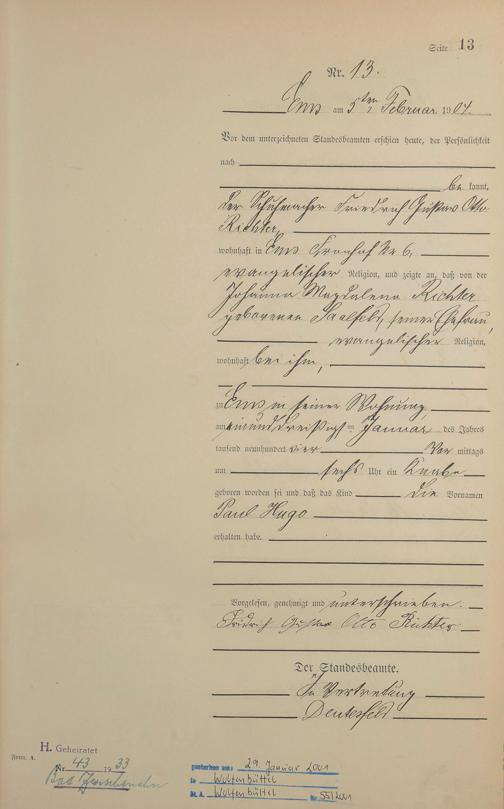 Seite 13
Nr. 13.
Ems am 5ten Februar 1904.
Vor dem unterzeichneten Standesbeamten erschien heute, der Persönlichkeit
nach
be kannt,
der Schuhmacher Friedrich Gustav Otto
Richter,
wohnhaft in Ems Fronhof Nr 6,
evangelischer Religion, und zeigte an, daß von der
Johanna Magdalena Richter
geborenen Saalfeld, seiner Ehefrau,
evangelischer Religion,
wohnhaft bei ihm,
zu Ems in seiner Wohnung
am einunddreißigsten Januar des Jahres
tausend neunhundert vier Vor mittags
um sechs Uhr ein Knabe
geboren worden sei und daß das Kind die Vornamen
Paul Hugo
erhalten habe.
Vorgelesen, genehmigt und unterschrieben.
Friedrich Gustav Otto Richter
Der Standesbeamte.
In Vertretung
H. Geheiratet
Form. A.
Nr 43 1933
Bad
gestorben am: 29. Januar 2001
in Wolfenbüttel
St. A. Wolfenbüttel Nr 55/2001